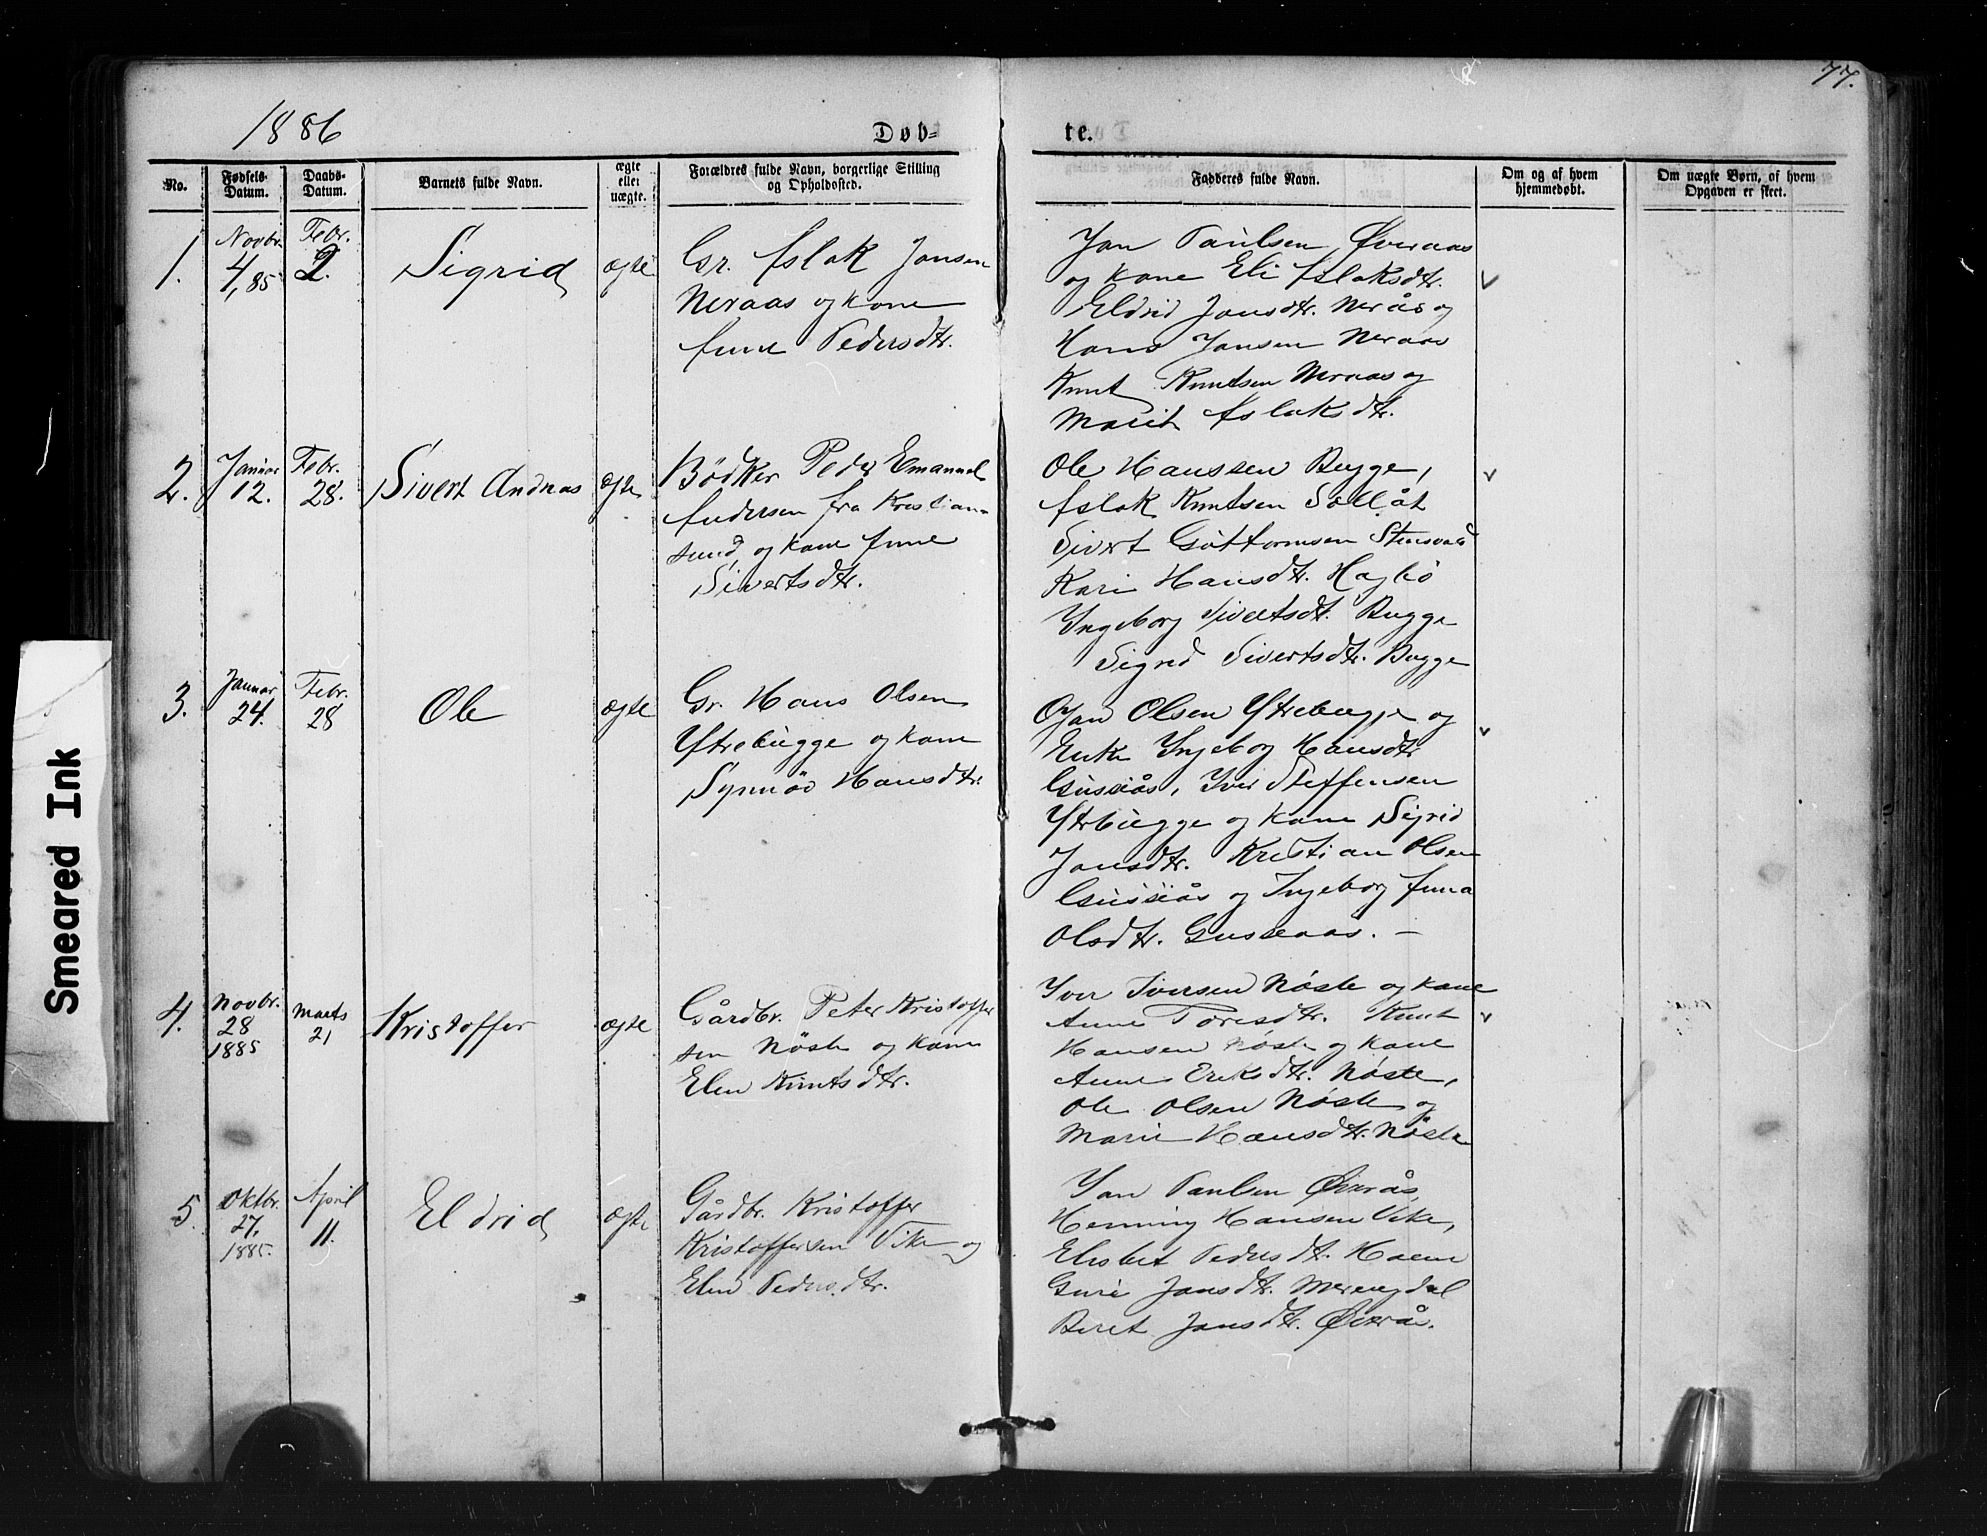 77.
1886
Døb=
te.
No.
Fødsels-
Datum.
Daabs-
Datum.
Barnets fulde Navn.
ægte
eller
uægte.
Forældres fulde Navn, borgerlige Stilling
og Opholdssted.
Fadderes fulde Navn.
Om og af hvem
hjemmedøbt.
Om uægte Børn, af hvem
Opgaven er skeet.
1.
Novbr.
4, 85
Febr.
2.
Sigrid
ægte
Gr. Aslak Jonsen
Neraas og kone
Anne Pedersdtr.
Jon Paulsen Øveraas
og kone Eli Aslaksdtr.
Eldrid Jonsdtr. Nerås og
Hans Jonsen Neraas
Knut Knutsen Neraas og
Marit Aslaksdtr.
2.
Januar
12.
Febr.
28.
Sivert Andreas
ægte
Bødker Peder Emanuel
Andersen fra Kristian-
sund, og kone Anne
Sivertsdtr.
Ole Hanssen Bugge,
Aslak Knutsen
Sivert Guttormsen
Kari Hansdtr. Hagbø
Ingeborg Sivertsdt. Bugge
Sigrid Sivertsdtr. Bugge
3.
Januar
24.
Febr.
28
Ole
ægte
Gr. Hans Olsen
Ytrebugge og kone
Synnøv Hansdtr.
Jon Olsen Ytrebugge og
Enke Ingeborg Hansdtr
Gussiås, Iver Steffensen
Ytrbugge og kone Sigrid
Jonsdtr. Kristian Olsen
Gussiås og Ingeborg Anna
Olsdtr. Gusseaas. —
4.
Novbr.
28
1885
Marts
21
Kristoffer
ægte
Gårdbr. Peter Kristoffer
sen Nøste og kone
Elen Knutsdtr.
Iver Iversen Nøste og kone
Anne Toresdtr. Knut
Hansen Nøste og kone
Anne Eriksdtr. Nøste,
Ole Olsen Nøste og
Marie Hansdtr. Nøste
5.
Oktbr.
27,
1885.
April
11.
Eldrid
ægte
Gårdbr. Kristoffer
Kristoffersen Vike og
Elen Pedersdtr.
Jon Paulsen Øverås,
Henning Hansen Vike,
Elisbet Pedersdt. Hoem
Guri Jonsdtr. Meringdal
Beret Jonsdtr. Øverås.
Smeared Ink